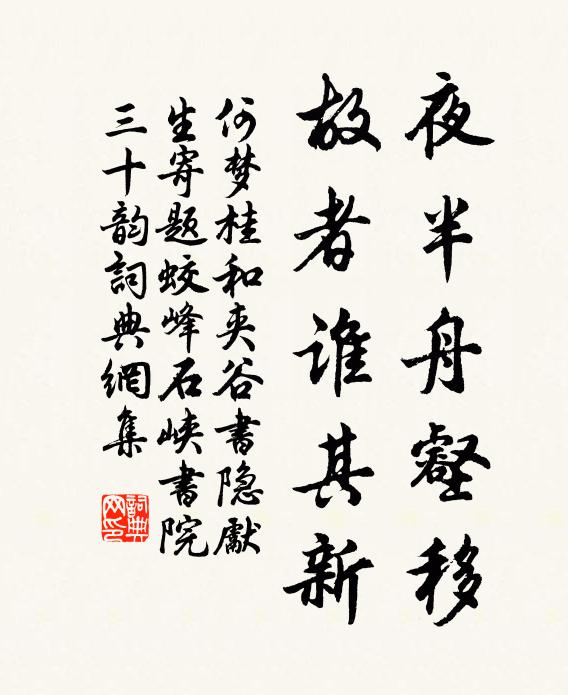 夜半舟壑移
故者谁其新
何梦桂和夹谷書隐獻
生寄题蛟峰石峡書院
三十韵詞典網集
詞典
网印